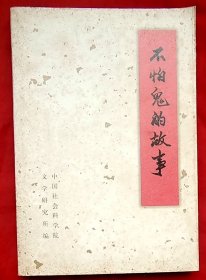 不怕鬼的故事
中国社会科学院
文学研究所编